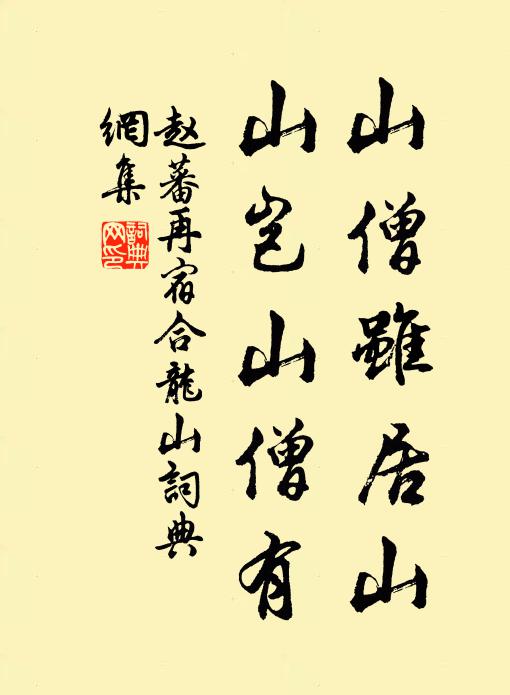 山僧雖居山
山岂山僧有
赵蕃再宿合龍山詞典
網集
詞典网印